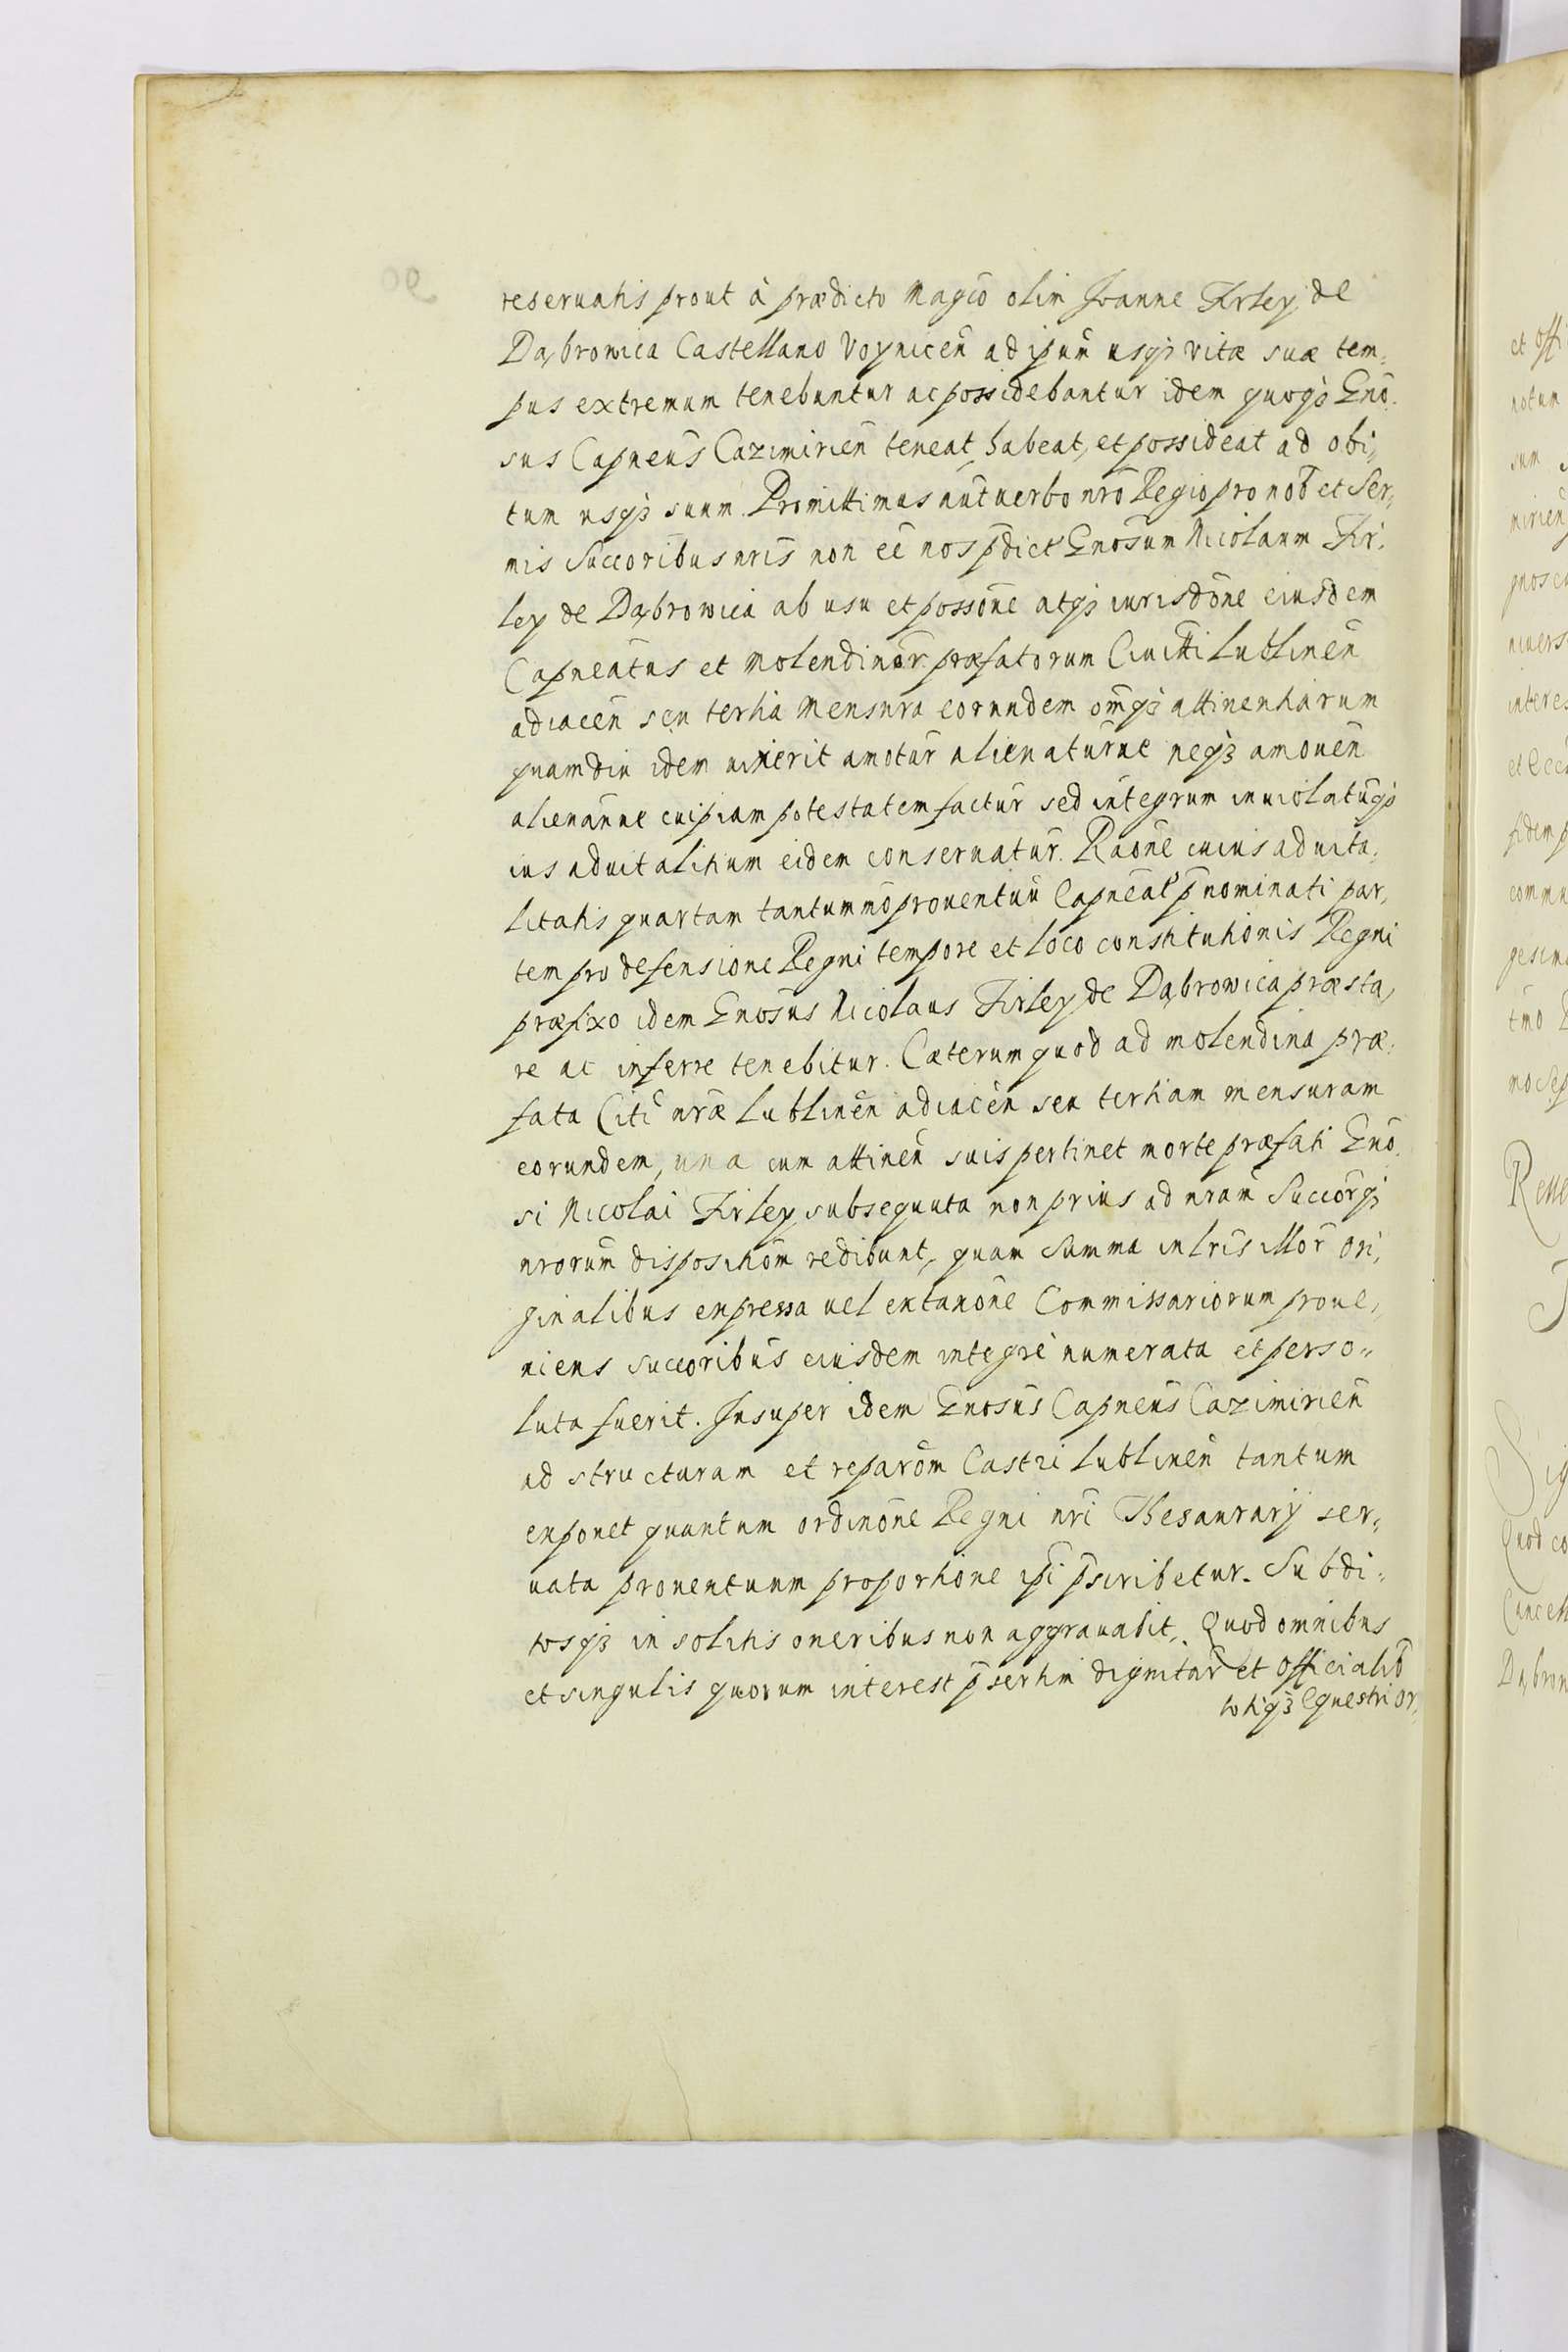 reseruatis prout à prædicto Magco olim Joanne Firley de
Dąbrowica Castellano Voynicen̄ ad ipsum usq3 vitæ suæ tem„
pus extremum tenebuntur ac possidebantur idem quoq3 Gno„
sus Capneus̄ Cazimirien̄ teneat, habeat, et possideat ad obi„
tum usq3 suum. Promittimus aut̄ uerbo nr̄o Regio pro nob̄ et Ser„
mis Succoribus nr̄is non eē nos p̄dict Gnosum Nicolaum Fir„
ley de Dąbrowica ab usu et possōne atq3 iurisdōne eiusdem
Capneatus et Molendinor̄ præfatorum Ciuitti Lublinen̄
adiacen̄ seu tertia Mensura eorundem om̄q3 attinentiarum
quamdiu idem uixerit amotur̄ alienatur̄ue neq3 amouen̄
alienan̄ue cuipiam potestatem factur̄ sed integrum inuiolatūq3
ius aduitalitium eidem conseruatur̄. Raōne cuius aduita„
litatis quartam tantummo prouentuū Capneat p̄nominati par„
tem pro defensione Regni tempore et loco constitutionis Regni
præfixo idem Gnosus Nicolaus Firley de Dąbrowica præsta„
re ac inferre tenebitur. Cæterum quod ad molendina præ„
fata Citi nr̄æ Lublinen̄ adiacen̄ seu tertiam mensuram
eorundem, una cum attinen̄ suis pertinet morte præfati Gno„
si Nicolai Firley subsequuta non prius ad nr̄am Succorq3
nr̄orum dispositiōm redibunt, quam Summa in lr̄is illor̄ ori„
ginalibus expressa uel ex taxōne Commissariorum proue„
niens succoribus eiusdem integrè numerata et perso„
luta fuerit. Insuper idem Gnosus Capneus̄ Cazimirien̄
ad structuram et reparōm Castri Lublinen̄ tantum
exponet quantum ordinōne Regni nr̄i Thesaurarij ser„
uata prouentuum proportione ipi p̄scribetur. Subdi„
tosq3 insolitis oneribus non aggrauabit. Quod omnibus
et singulis quorum interest p̄sertim dignitar̄ et Officialib̄
totiq3 Equestri Or„